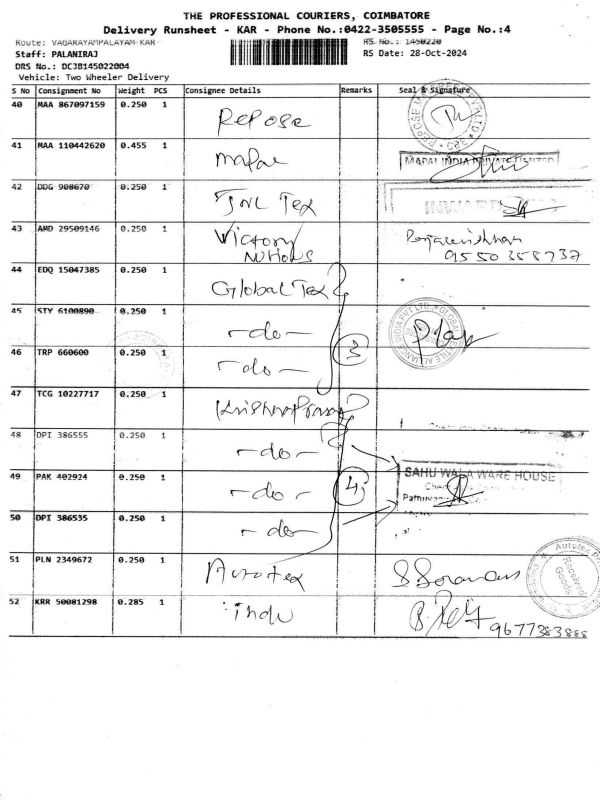 THE PROFESSIONAL COURIERS, COIMBATORE
Delivery Runsheet - KAR - Phone No.:0422-3505555 - Page No.:4
Route: VAGARAYAMPALAYAM KAR RS No.: 1450220
Staff: PALANIRAJ RS Date: 28-Oct-2024
DRS No.: DCJB145022004
Vehicle: Two Wheeler Delivery
S No Consignment No Weight PCS Consignee Details Remarks Seal & Signature
40 MAA 867097159 0.250 1 Repose
41 MAA 110442620 0.455 1 Mapal MAPAL INDIA PRIVATE LIMITED
42 DDG 908670 0.250 1 Tex INWARD
43 AMD 29509146 0.250 1 Victory Nutions 9550358737
44 EDQ 15047385 0.250 1 Global Tex
45 STY 6100890 0.250 1 -do-
46 TRP 660600 0.250 1 -do- 3
47 TCG 10227717 0.250 1
48 DPI 386555 0.250 1 -do-
SAHU WALA WARE HOUSE
49 PAK 402924 0.250 1 -do- 4
50 DPI 386535 0.250 1 -do-
51 PLN 2349672 0.250 1 Autotex Received Goods
52 KRR 50081298 0.285 1 indu 9677383888